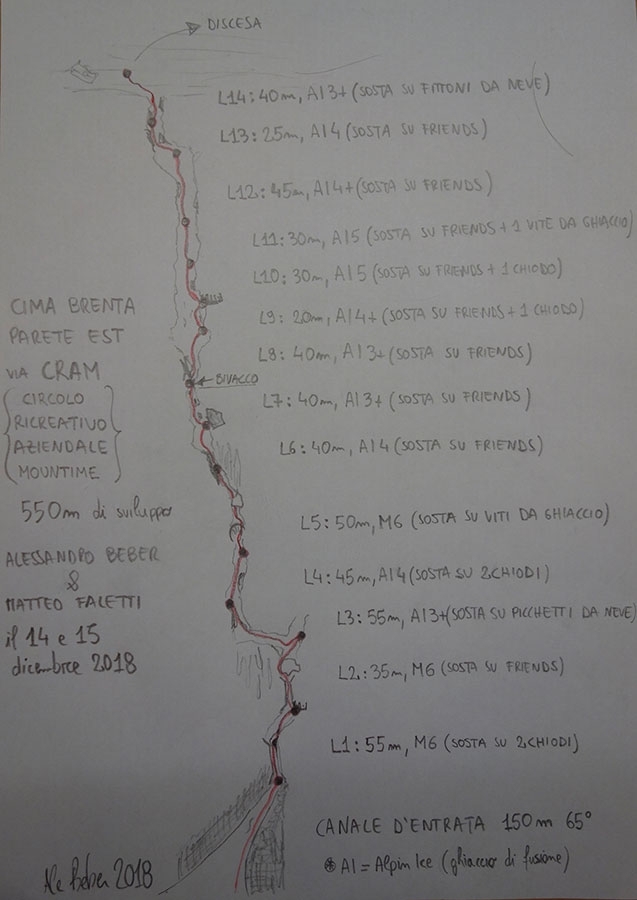 DISCESA
L14: 40m, AI3+ (SOSTA SU FITTONI DA NEVE)
L13: 25m, AI4 (SOSTA SU FRIENDS)
L12: 45m, AI4+ (SOSTA SU FRIENDS)
L11: 30m, AI5 (SOSTA SU FRIENDS + 1 VITE DA GHIACCIO)
L10: 30m, AI5 (SOSTA SU FRIENDS + 1 CHIODO)
L9: 20m, AI4+ (SOSTA SU FRIENDS + 1 CHIODO)
L8: 40m, AI3+ (SOSTA SU FRIENDS)
BIVACCO
L7: 40m, AI3+ (SOSTA SU FRIENDS)
L6: 40m, AI4 (SOSTA SU FRIENDS)
L5: 50m, M6 (SOSTA SU VITI DA GHIACCIO)
L4: 45m, AI4 (SOSTA SU 2 CHIODI)
L3: 55m, AI3+ (SOSTA SU PICCHETTI DA NEVE)
L2: 35m, M6 (SOSTA SU FRIENDS)
L1: 55m, M6 (SOSTA SU 2 CHIODI)
CANALE D'ENTRATA 150m 65°
* AI = Alpin Ice (ghiaccio di fusione)
CIMA BRENTA
PARETE EST
VIA CRAM
(CIRCOLO
RICREATIVO
AZIENDALE
MOUNTIME)
550m di sviluppo
ALESSANDRO BEBER
&
MATTEO FALETTI
il 14 e 15
dicembre 2018
Ale Beber 2018